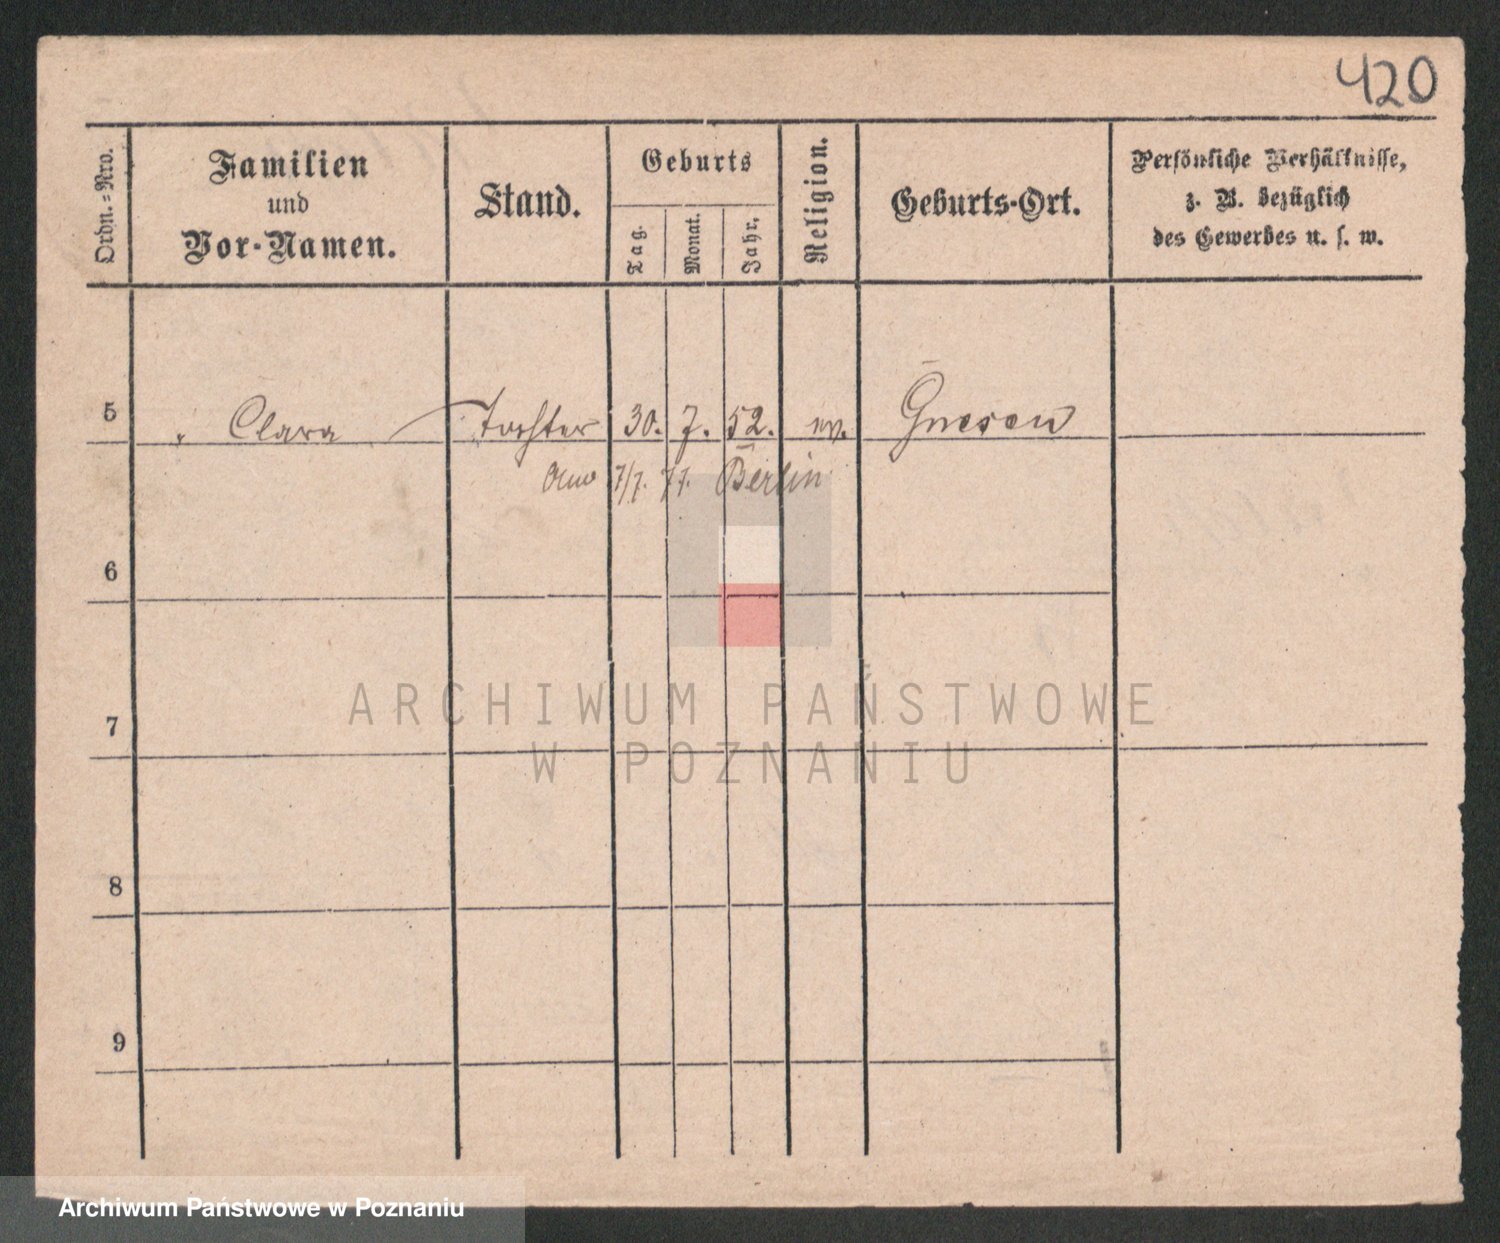 420
Ordn.-Nro.
Familien
und
Vor-Namen.
Stand.
Geburts
Tag.
Monat.
Jahr.
Religion.
Geburts-Ort.
Persönliche Verhältnisse,
z. B. bezüglich
des Gewerbes u. s. w.
5 " Clara Tochter 30. 7. 52. ev. Gnesen
7/7. 77. Berlin
6
7
8
9
ARCHIWUM PAŃSTWOWE
W POZNANIU
Archiwum Państwowe w Poznaniu